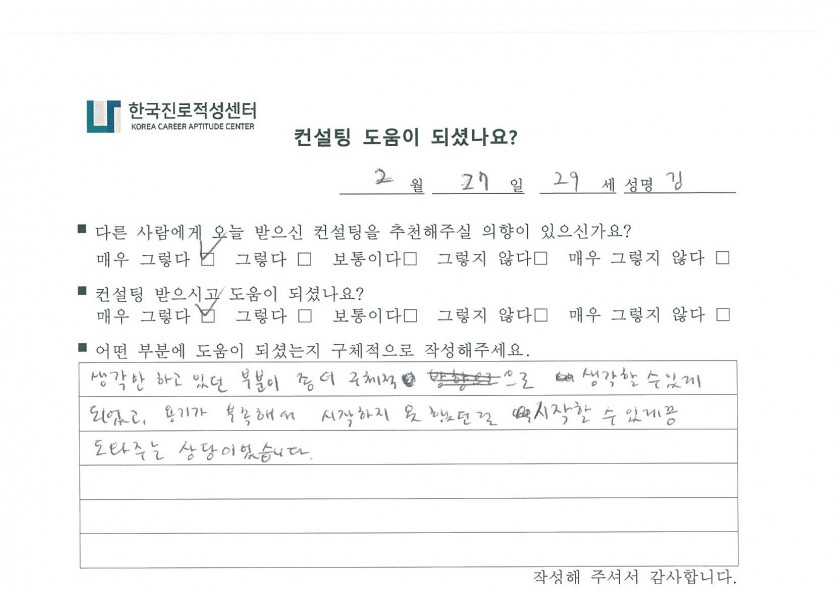 한국진로적성센터
KOREA CAREER APTITUDE CENTER
컨설팅 도움이 되셨나요?
2 월 27 일 29 세 성명 김
■ 다른 사람에게 오늘 받으신 컨설팅을 추천해주실 의향이 있으신가요?
매우 그렇다 ☑ 그렇다 □ 보통이다□ 그렇지 않다□ 매우 그렇지 않다 □
■ 컨설팅 받으시고 도움이 되셨나요?
매우 그렇다 ☑ 그렇다 □ 보통이다□ 그렇지 않다□ 매우 그렇지 않다 □
■ 어떤 부분에 도움이 되셨는지 구체적으로 작성해주세요.
생각만 하고 있던 부분이 좀 더 구체적 으로 생각할 수 있게
되었고, 용기가 부족해서 시작하지 못했던걸 시작할 수 있게끔
도와주는 상담이었습니다.
작성해 주셔서 감사합니다.